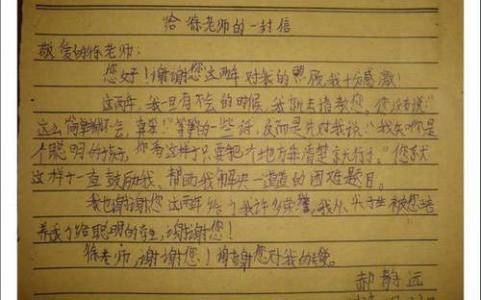 给徐老师的一封信
敬爱的徐老师：
您好！谢谢您这两年对我的照顾，我十分感激！
这两年，我一旦有不会的时候，我就去请教您，您没有说“
这么简单都不会，真笨！”等等的一些话，反而是对我说：“我知你是
个聪明的孩子，你看这样子只要把个地方弄清楚就行了。”您就
这样子一直鼓励我、帮助我解决一道道的困难题目。
我也谢谢您这两年给了我许多荣誉，我从被您培
养成了个聪明的，谢谢您！
徐老师，谢谢您！谢谢您对我的
郝静远